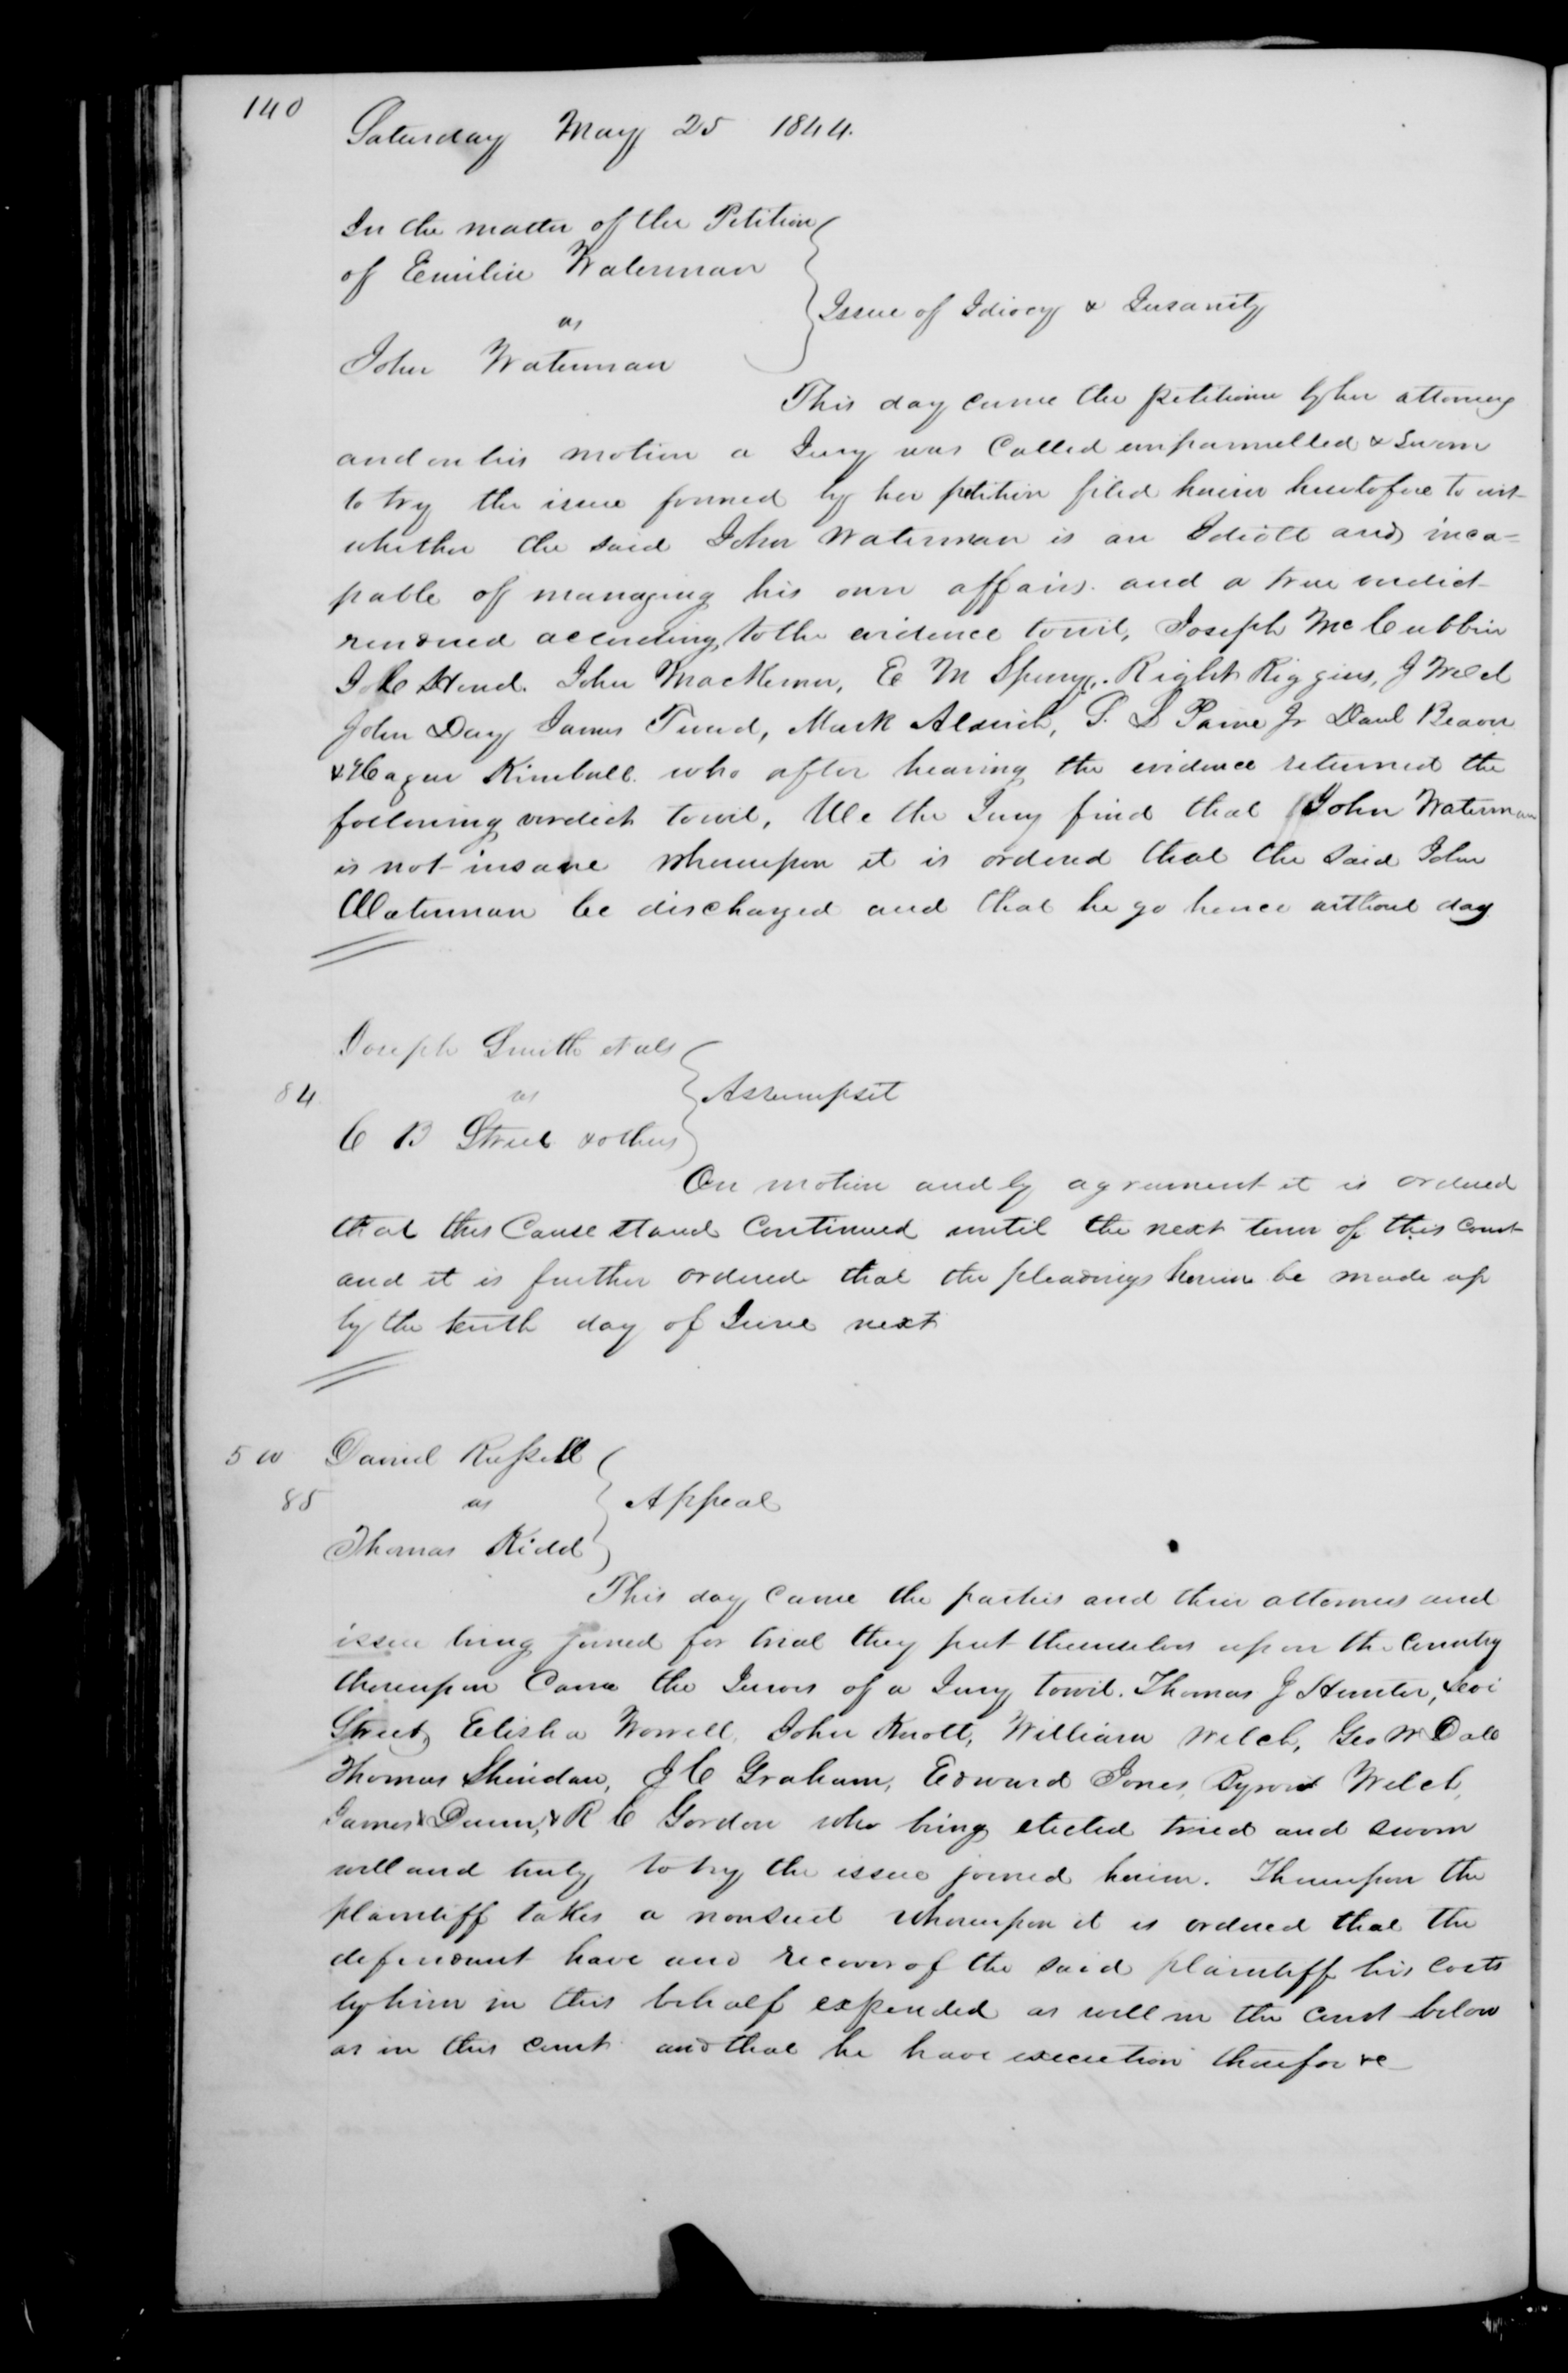 140
Saturday May 25 1844.
In the matter of the Petition
of Emilie Waterman
vs
John Waterman
Issue of Idiocy & Insanity
This day came the petitioner by her attorney
and on his motion a Jury was Called empannelled & sworn
to try the issue formed by her petition filed herein heretofore to wit
whether the said John Waterman is an Idiott and inca=
pable of managing his own affairs. and a true verdict
rendered according to the evidence towit, Joseph McCubbin
John Mackemer, E M Spurry,. Right Riggins, J Welch
John Day James Tweed, Mark Aldrich, P. S Paine Jr Danl Beaver
& Hagar Kimball. who after hearing the evidence returned the
following verdict towit, We the Jury find that John Waterman
is not insane whereupon it is ordered that the said John
Waterman be discharged and that he go hence without day
Joseph Smith et als
84 vs
C B Street & others
Assumpsit
On motion and by agreement it is ordered
that this Cause stand Continued until the next term of this Court
and it is further ordered that the pleadings herein be made up
by the tenth day of June next
Daniel Russell
85 vs
Thomas Kidd
Appeal
This day Came the parties and their attorneys and
issue being joined for trial they put themselves upon the Country
thereupon Came the Jurors of a Jury towit. Thomas J Hunter, Levi
Street, Elisha Worrell, John Knott, William Welch, Geo W Dale
Thomas Sheridan, J C Graham, Edward Jones, Byron Welch,
James Dunn, & R C Gordon who being elected tried and sworn
well and truly to try the issue joined herein. Thereupon the
plaintiff takes a nonsuit whereupon it is ordered that the
defendant have and recover of the said plaintiff his Costs
by him in this behalf expended as well in the Court below
as in this Court and that he have execution therefor &c